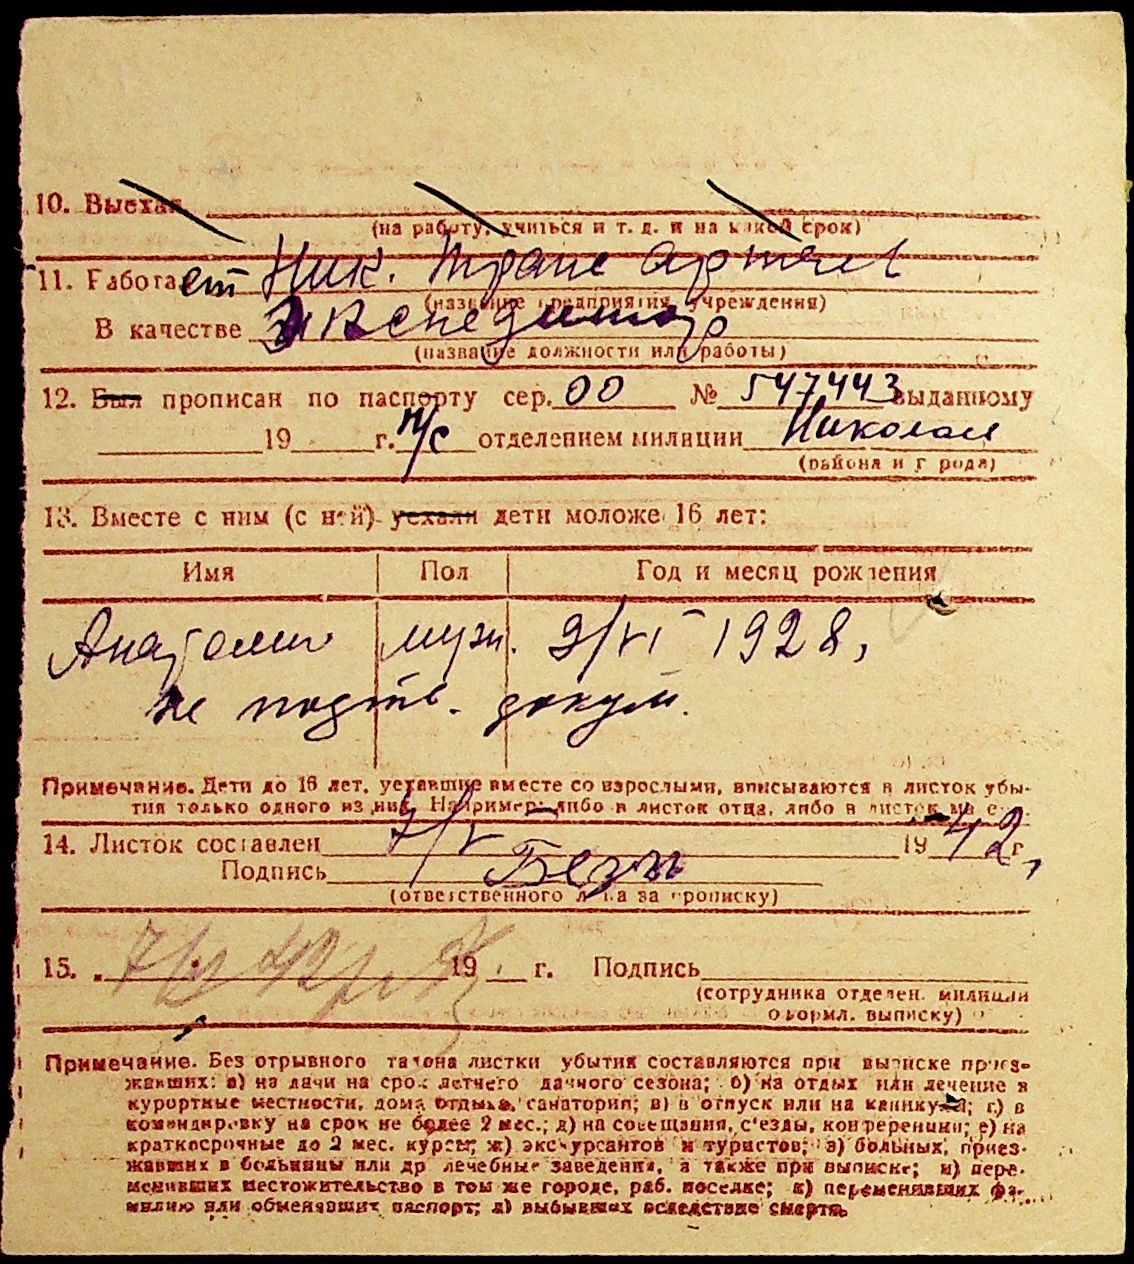 10. Выехал
(на работу, учиться и т. д. и на какой срок)
11. Работает Ник. Транс артель
(название предприятия, учреждения)
В качестве экспедитор
(название должности или работы)
12. Был прописан по паспорту сер. 00 № 547443 выданному
19 г. п/с отделением милиции Николаев
(района и города)
13. Вместе с ним (с ней) уехали дети моложе 16 лет:
Имя Пол Год и месяц рождения
Анатолий муж. 9/VI 1928,
не подтв. докум.
Примечание. Дети до 16 лет, уехавшие вместе со взрослыми, вписываются в листок убы-
тия только одного из них. Например: либо в листок отца, либо в листок
14. Листок составлен 7/V 1942 г.
Подпись
(ответственного лица за прописку)
15. 19 г. Подпись
(сотрудника отделен. милиции
оформл. выписку)
Примечание. Без отрывного талона листки убытия составляются при выписке приез-
жавших: а) на дачи на срок летнего дачного сезона; б) на отдых или лечение в
курортные местности, дома отдыха, санатории; в) в отпуск или на каникулы; г) в
командировку на срок не более 2 мес.; д) на совещания, с'езды, конференции; е) на
краткосрочные до 2 мес. курсы; ж) экскурсантов и туристов; з) больных, приез-
жавших в больницы или др лечебные заведения, а также при выписке; и) пере-
менивших местожительство в том же городе, раб. поселке; к) переменивших фа-
милию или обменявших паспорт; л) выбывших вследствие смерти.